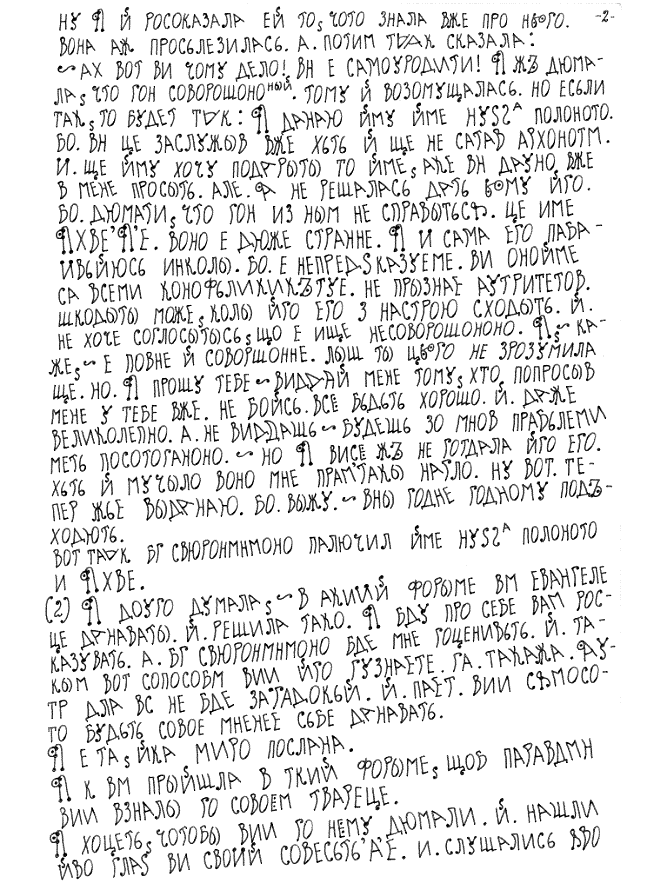 НУ Я Й РОСОКАЗАЛА ЕЙ ТО, ЧОТО ЗНАЛА ВЖЕ ПРО НЬОГО. -2-
ВОНА АЖ ПРОСЬЛЕЗИЛАСЬ. А. ПОТИМ ТАК СКАЗАЛА:
~АХ ВОТ ВИ ЧОМУ ДЕЛО! ВН Е САМОУРОДИТИ! Я ЖЪ ДЮМА-
ЛА, ЧТО ГОН СОВОРШОНОНЫЙ. ТОМУ Й ВОЗОМУЩАЛАСЬ. НО ЕСЬЛИ
ТАК, ТО БУДЕТ ТАК: Я ДАНАЮ ЙМУ ЙМЕ НУSZА ПОЛОНОТО.
БО. ВН ЦЕ ЗАСЛУЖЫВ ВЖЕ ХЬТЬ Й ЩЕ НЕ САТАВ АРХОНОТМ.
И. ЩЕ ЙМУ ХОЧУ ПОДАРЫТЫ ТО ЙМЕ, АКЕ ВН ДАУНО ВЖЕ
В МЕНЕ ПРОСЫТЬ. АЛЕ. Я НЕ РЕШАЛАСЬ ДАТЬ ЙОМУ ЙГО.
БО. ДЮМАТИ, ЧТО ГОН ИЗ НЫМ НЕ СПРАВЫТЬСЯ. ЦЕ ИМЕ
ЯХВЕ'Я'Е. ВОНО Е ДЮЖЕ СТРАННЕ. Я И САМА ЕГО ПАБА-
ИВЬИЮСЬ ИНКОЛЫ. БО. Е НЕПРЕДSКАЗУЕМЕ. ВИ ОНОЙМЕ
СА ВСЕМИ КОНОФЬЛИКИКЪТУЕ. НЕ ПРЫЗНАЕ АУТРИТЕТОВ.
ШКОДЫТЫ МОЖЕ, КОЛЫ ЙГО ЕГО З НАСТРОЮ СХОДЫТЬ. Й.
НЕ ХОЧЕ СОГЛОСЫТЫСЬ, ЩО Е ИЩЕ НЕСОВОРШОНОНО. Я,~КА-
ЖЕ,~Е ПОВНЕ Й СОВОРШОННЕ. ЛЫШ ТЫ ЦЬОГО НЕ ЗРОЗУМИЛА
ЩЕ. НО. Я ПРОШУ ТЕБЕ~ВИДДАЙ МЕНЕ ТОМУ, ХТО ПОПРОСЫВ
МЕНЕ У ТЕБЕ ВЖЕ. НЕ БОЙСЬ. ВСЁ БЬДЬТЬ ХОРОШО. Й. ДАЖЕ
ВЕЛИКОЛЕПНО. А. НЕ ВИДДАШЬ~БУДЕШЬ ЗО МНОВ ПРАБЬЛЕМИ
МЕТЬ ПОСОТОГАНОНО. ~НО Я ВИСЕ ЖЪ НЕ ГОТДАЛА ЙГО ЕГО.
ХЬТЬ Й МУЧЫЛО ВОНО МНЕ ПРАМ'ТАКЫ НАГЛО. НУ ВОТ. ТЕ-
ПЕР ЖЬЕ ВЫДАНАЮ. БО. ВЫЖУ.~ВНЫ ГОДНЕ ГОДНОМУ ПОДЪ-
ХОДЮТЬ.
ВОТ ТАК БГ СВЮРОНМНМОНО ПАЛЮЧИЛ ЙМЕ НУSZА ПОЛОНОТО
И ЯХВЕ.
(2) Я ДОУГО ДУМАЛА,~В АКИИЙ ФОРЫМЕ ВМ ЕВАНГЕЛЕ
ЦЕ ДАНАВАТЫ. Й. РЕШИЛА ТАКО. Я БДУ ПРО СЕБЕ ВАМ РОС-
КАЗУВАТЬ. А. БГ СВЮРОНМНМОНО БДЕ МНЕ ГОЦЕНИВЬТЬ. Й. ТА-
КЫМ ВОТ СОПОСОБМ ВИИ ЙГО ГУЗНАЕТЕ. ГА. ТАКАЖА. АУ-
ТР ДЛА ВС НЕ БДЕ ЗАГАДОКЬЙ. Й. ПАЕТ. ВИИ САМОСО-
ТО БУДЬТЬ СОВОЕ МНЕНЕЕ СЬБЕ ДАНАВАТЬ.
Я Е ТА, ЙКА МИРО ПОСЛАНА.
Я К ВМ ПРЫЙШЛА В ТКИЙ ФОРЫМЕ, ЩОБ ПАРАВДМН
ВИИ ВЗНАЛЫ ГО СОВОЕМ ТВАРЕЦЕ.
Я ХОЦЕТЬ, ЧОТОБЫ ВИИ ГО НЕМУ ДЮМАЛИ. Й. НАШЛИ
ЙВО ГЛАS ВИ СВОИЙ СОВЕСЬТЬ'А'Е. И. СЛУШАЛИСЬ ЯВО